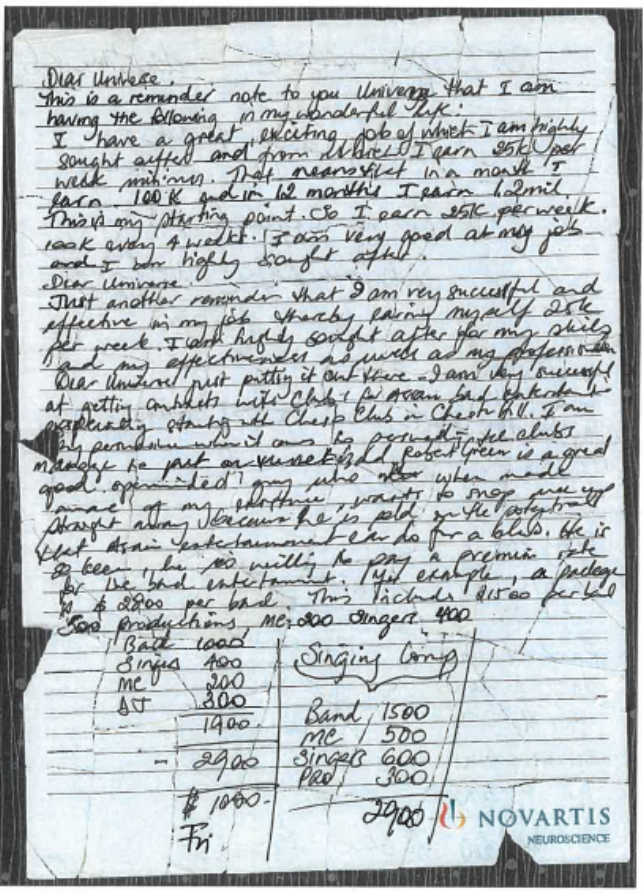 Dear Universe.
This is a reminder note to you Universe that I am
having the following in my wonderful life:
I have a great, exciting job of which I am highly
sought after and from which I earn 25K per
week minimum. That means that in a month I
earn 100K and in 12 months I earn 1.2mil
This is my starting point. So I earn 25K per week.
100K every 4 weeks. I am very good at my job
and I am highly sought after.
Dear Universe.
Just another reminder that I am very successful and
effective in my job thereby earning myself 25K
per week. I am highly sought after for my skills
and my effectiveness as well as my
Dear Universe just putting it out there - I am very successful
at getting contracts with Clubs for Asian band
especially starting with Club in I am
very when it comes to clubs
manage to put on Robert Green is a great
good openminded guy who when made
aware of my existence, wants to snap me up
straight away because he is sold on the
that Asian entertainment can do for a club. He is
so keen, he is willing to pay a premium rate
for live band entertainment. For example, a package
is $ 2900 per band. This includes $1500 per band
500 productions, MC 200 Singers 400
Band 1000
Singers 400
MC 200
DJ 300
1900
- 2900
$ 1000.
Fri
Singing Comp
Band 1500
MC 500
Singers 600
PRO 300
2900
NOVARTIS
NEUROSCIENCE